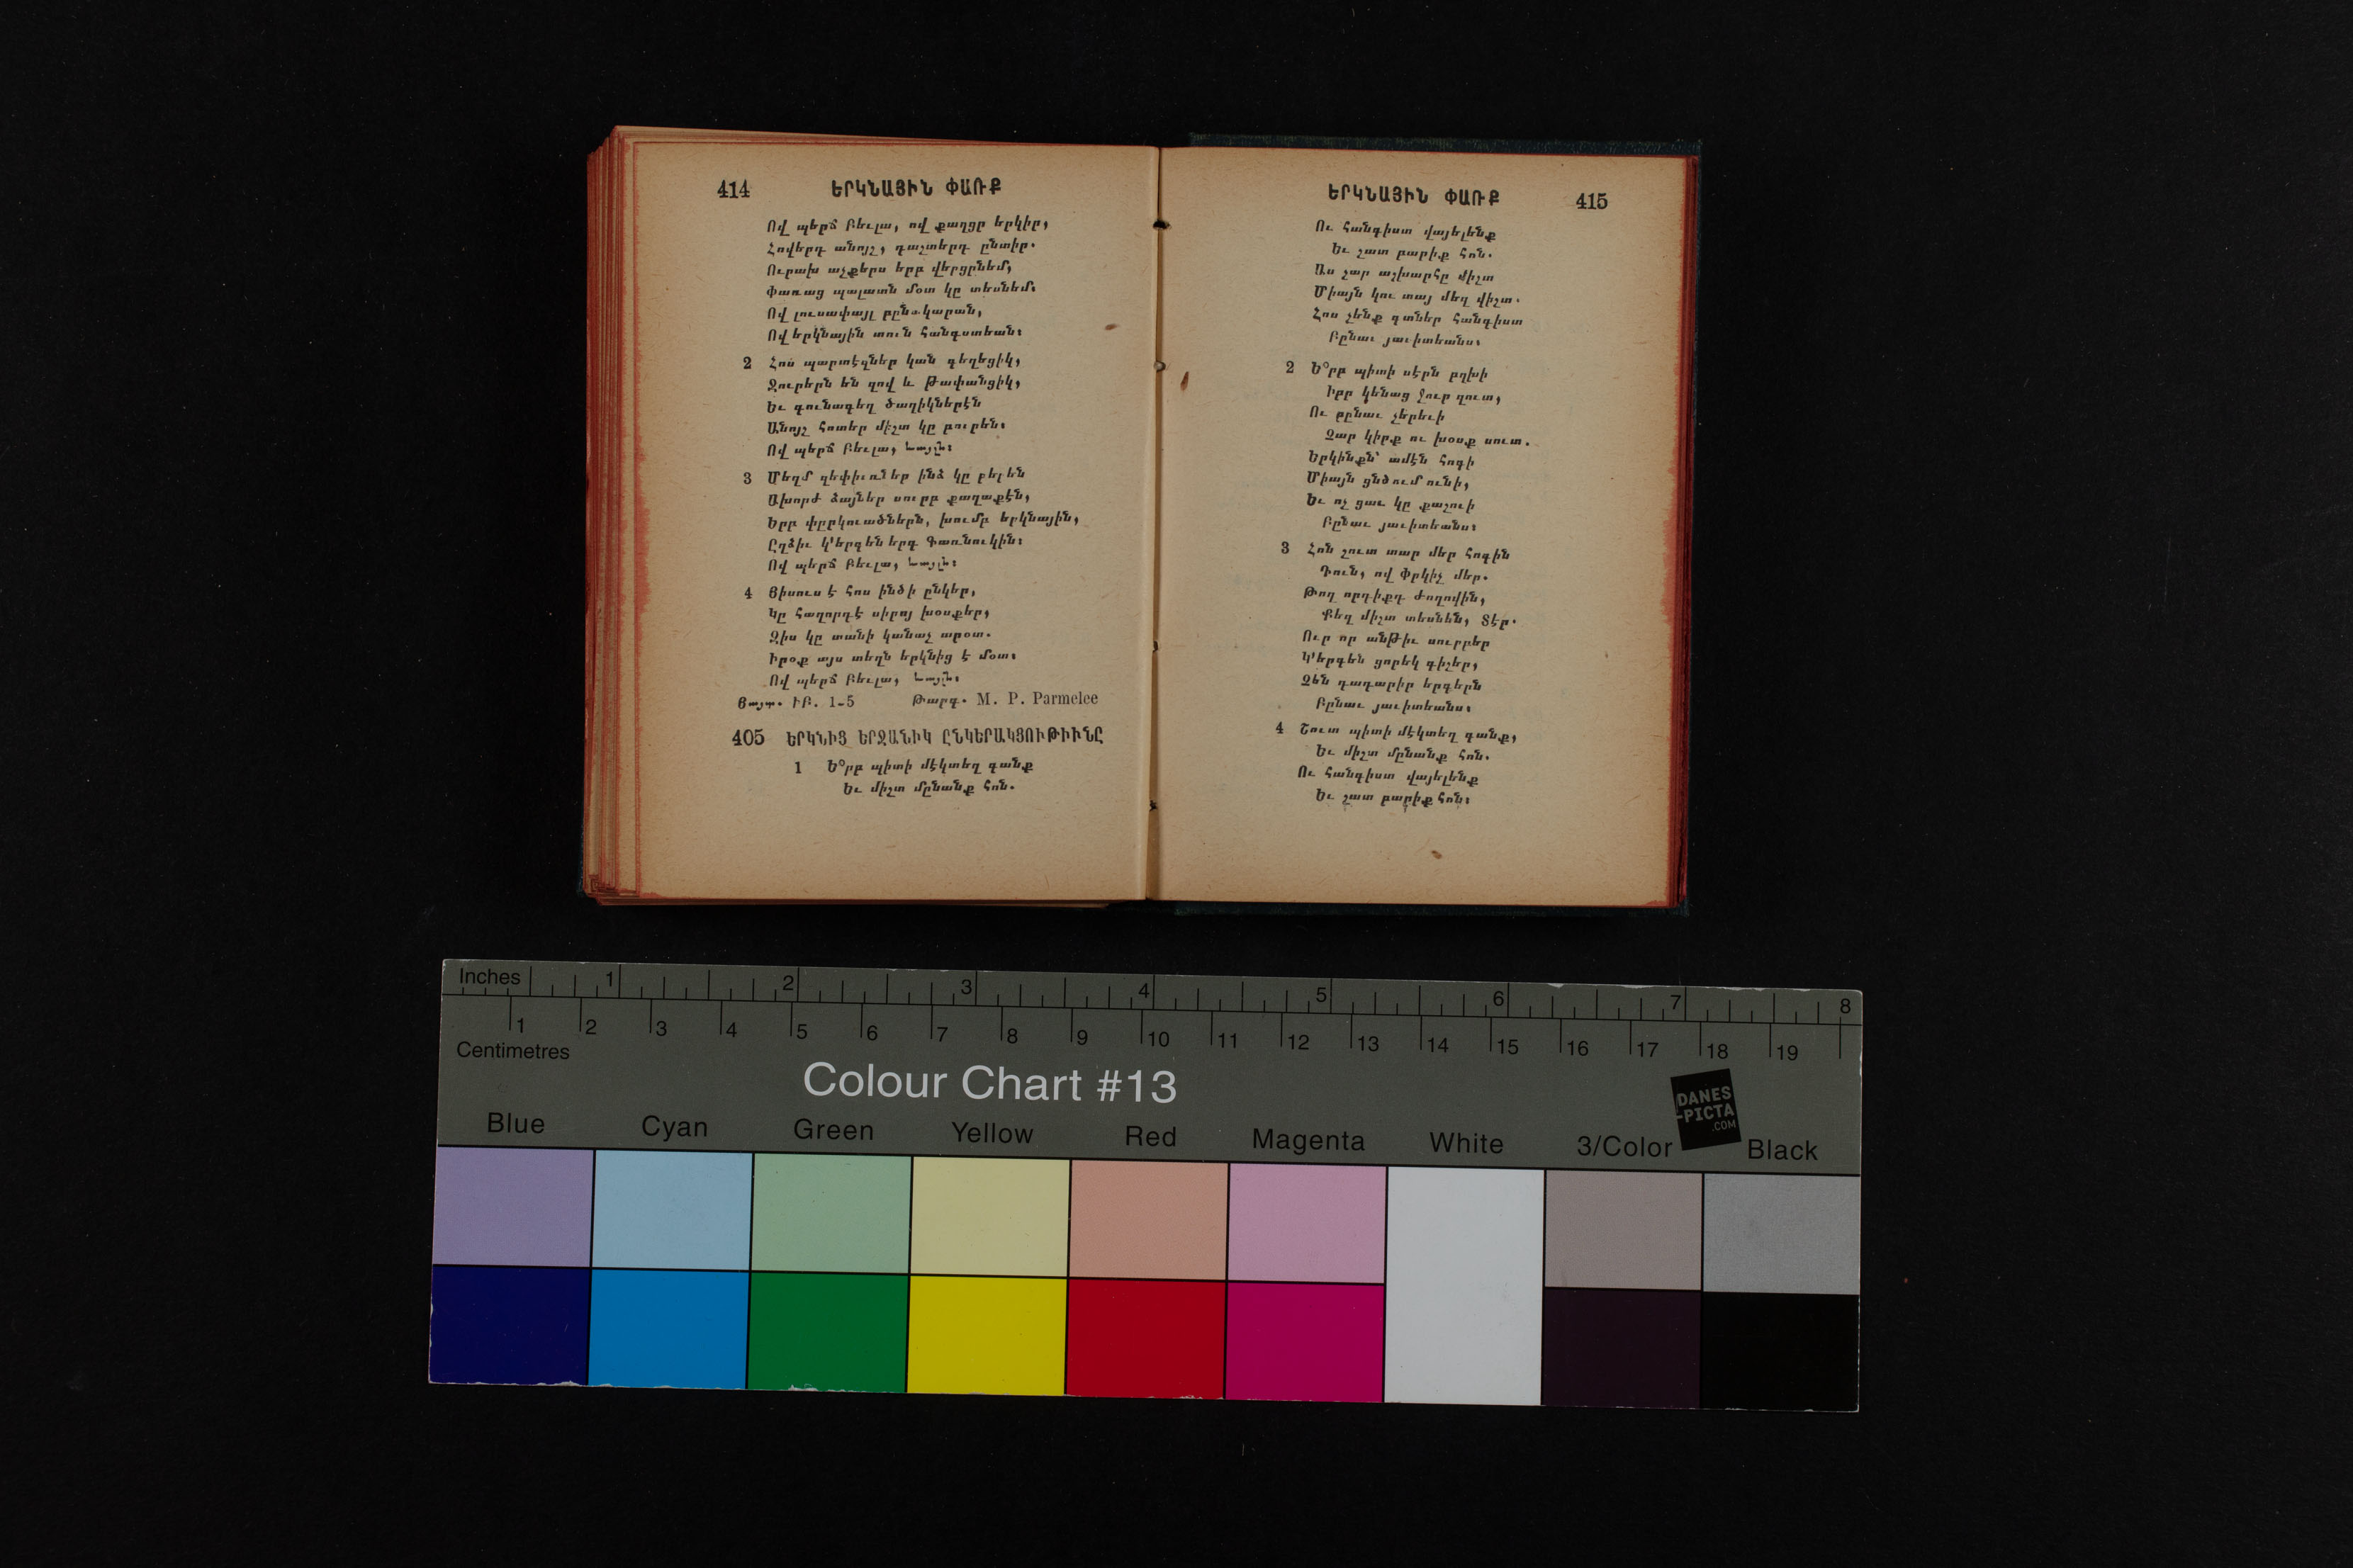 414 ԵՐԿՆԱՅԻՆ ՓԱՌՔ
Ով պերճ Բեւլա, ով քաղցր երկիր,
Հովերդ անոյշ, դաշտերդ ընտիր.
Ուրախ աչքերս երբ վերցընեմ,
Փառաց պալատն մօտ կը տեսնեմ։
Ով լուսափայլ բընակարան,
Ով երկնային տուն հանգստեան։
2 Հոս պարտէզներ կան գեղեցիկ,
Ջուրերն են զով և թափանցիկ,
Եւ գունագեղ ծաղիկներէն
Անոյշ հոտեր միշտ կը բուրեն։
Ով պերճ Բեւլա, նայլն։
3 Մեղմ զեփիւռներ ինձ կը բելեն
Ախորժ ձայներ սուրբ քաղաքէն,
Երբ փըրկուածներն, խումբ երկնային,
Ըղձիւ կ'երգեն երգ Գառնուկին։
Ով պերճ Բեւլա, նայլն։
4 Յիսուս է հոս ինծի ընկեր,
Կը հաղորդէ սիրոյ խօսքեր,
Զիս կը տանի կանաչ արօտ.
Իրօք այս տեղն երկնից է մօտ։
Ով պերճ Բեւլա, նայլն։
Յայտ. ԻԲ. 1-5 Թարգ. M. P. Parmelee
405 ԵՐԿՆԻՑ ԵՐՋԱՆԻԿ ԸՆԿԵՐԱԿՑՈՒԹԻՒՆԸ
1 Ե՞րբ պիտի մէկտեղ գանք
Եւ միշտ մընանք հոն.
ԵՐԿՆԱՅԻՆ ՓԱՌՔ 415
Ու հանգիստ վայելենք
Եւ շատ բարիք հոն.
Աս չար աշխարհը միշտ
Միայն կու տայ մեզ վիշտ.
Հոս չենք գտներ հանգիստ
Բընաւ յաւիտեանս։
2 Ե՞րբ պիտի սէրն բղխի
Իբր կենաց ջուր զուտ,
Ու բընաւ չերեւի
Չար կիրք ու խօսք սուտ.
Երկինքն՝ ամէն հոգի
Միայն ցնծում ունի,
Եւ ոչ ցաւ կը քաշուի
Բընաւ յաւիտեանս։
3 Հոն շուտ տար մեր հոգին
Դուն, ով Փրկիչ մեր.
Թող որդիքդ ժողովին,
Քեզ միշտ տեսնեն, Տէր.
Ուր որ անթիւ սուրբեր
Կ'երգեն ցորեկ գիշեր,
Չեն դադարիր երգերն
Բընաւ յաւիտեանս։
4 Շուտ պիտի մէկտեղ գանք,
Եւ միշտ մընանք հոն.
Ու հանգիստ վայելենք
Եւ շատ բարիք հոն։
Inches 1 2 3 4 5 6 7 8
1 2 3 4 5 6 7 8 9 10 11 12 13 14 15 16 17 18 19
Centimetres
Colour Chart #13
DANES
-PICTA
.COM
Blue Cyan Green Yellow Red Magenta White 3/Color Black